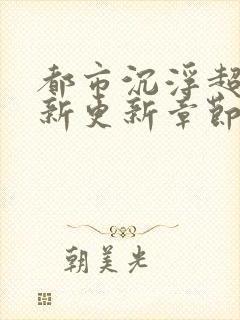 都市沉浮超
新更新章節
朝美光